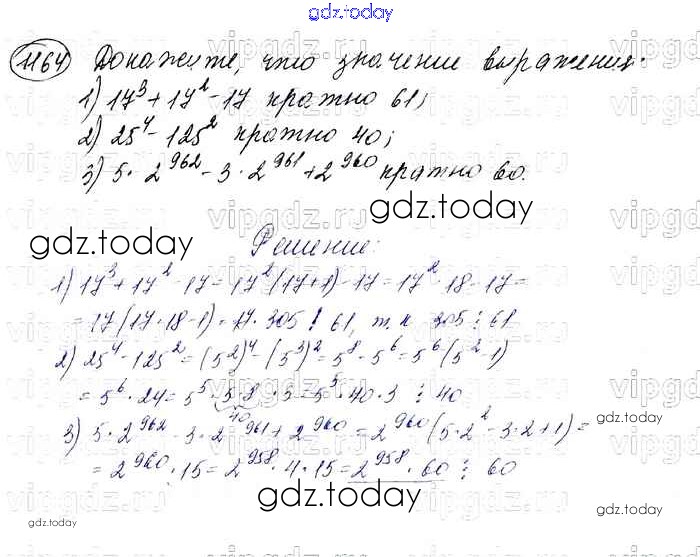 gdz.today
1164 Докажите, что значение выражения:
1) 17³ + 17² - 17 кратно 61;
2) 25⁴ - 125² кратно 40;
3) 5 · 2⁹⁶² - 3 · 2⁹⁶¹ + 2⁹⁶⁰ кратно 60.
gdz.today
gdz.today
Решение:
1) 17³ + 17² - 17 = 17² (17+1) - 17 = 17² · 18 - 17 =
= 17 (17 · 18 - 1) = 17 · 305 ⋮ 61, т. к 305 ⋮ 61
2) 25⁴ - 125² = (5²)⁴ - (5³)² = 5⁸ - 5⁶ = 5⁶ (5² - 1)
= 5⁶ · 24 = 5⁵ · 5 · 8 · 3 = 5⁵ · 40 · 3 ⋮ 40
40
3) 5 · 2⁹⁶² - 3 · 2⁹⁶¹ + 2⁹⁶⁰ = 2⁹⁶⁰ (5 · 2² - 3 · 2 + 1) =
= 2⁹⁶⁰ · 15 = 2⁹⁵⁸ · 4 · 15 = 2⁹⁵⁸ · 60 ⋮ 60
gdz.today
gdz.today
gdz.today
vipgdz.ru